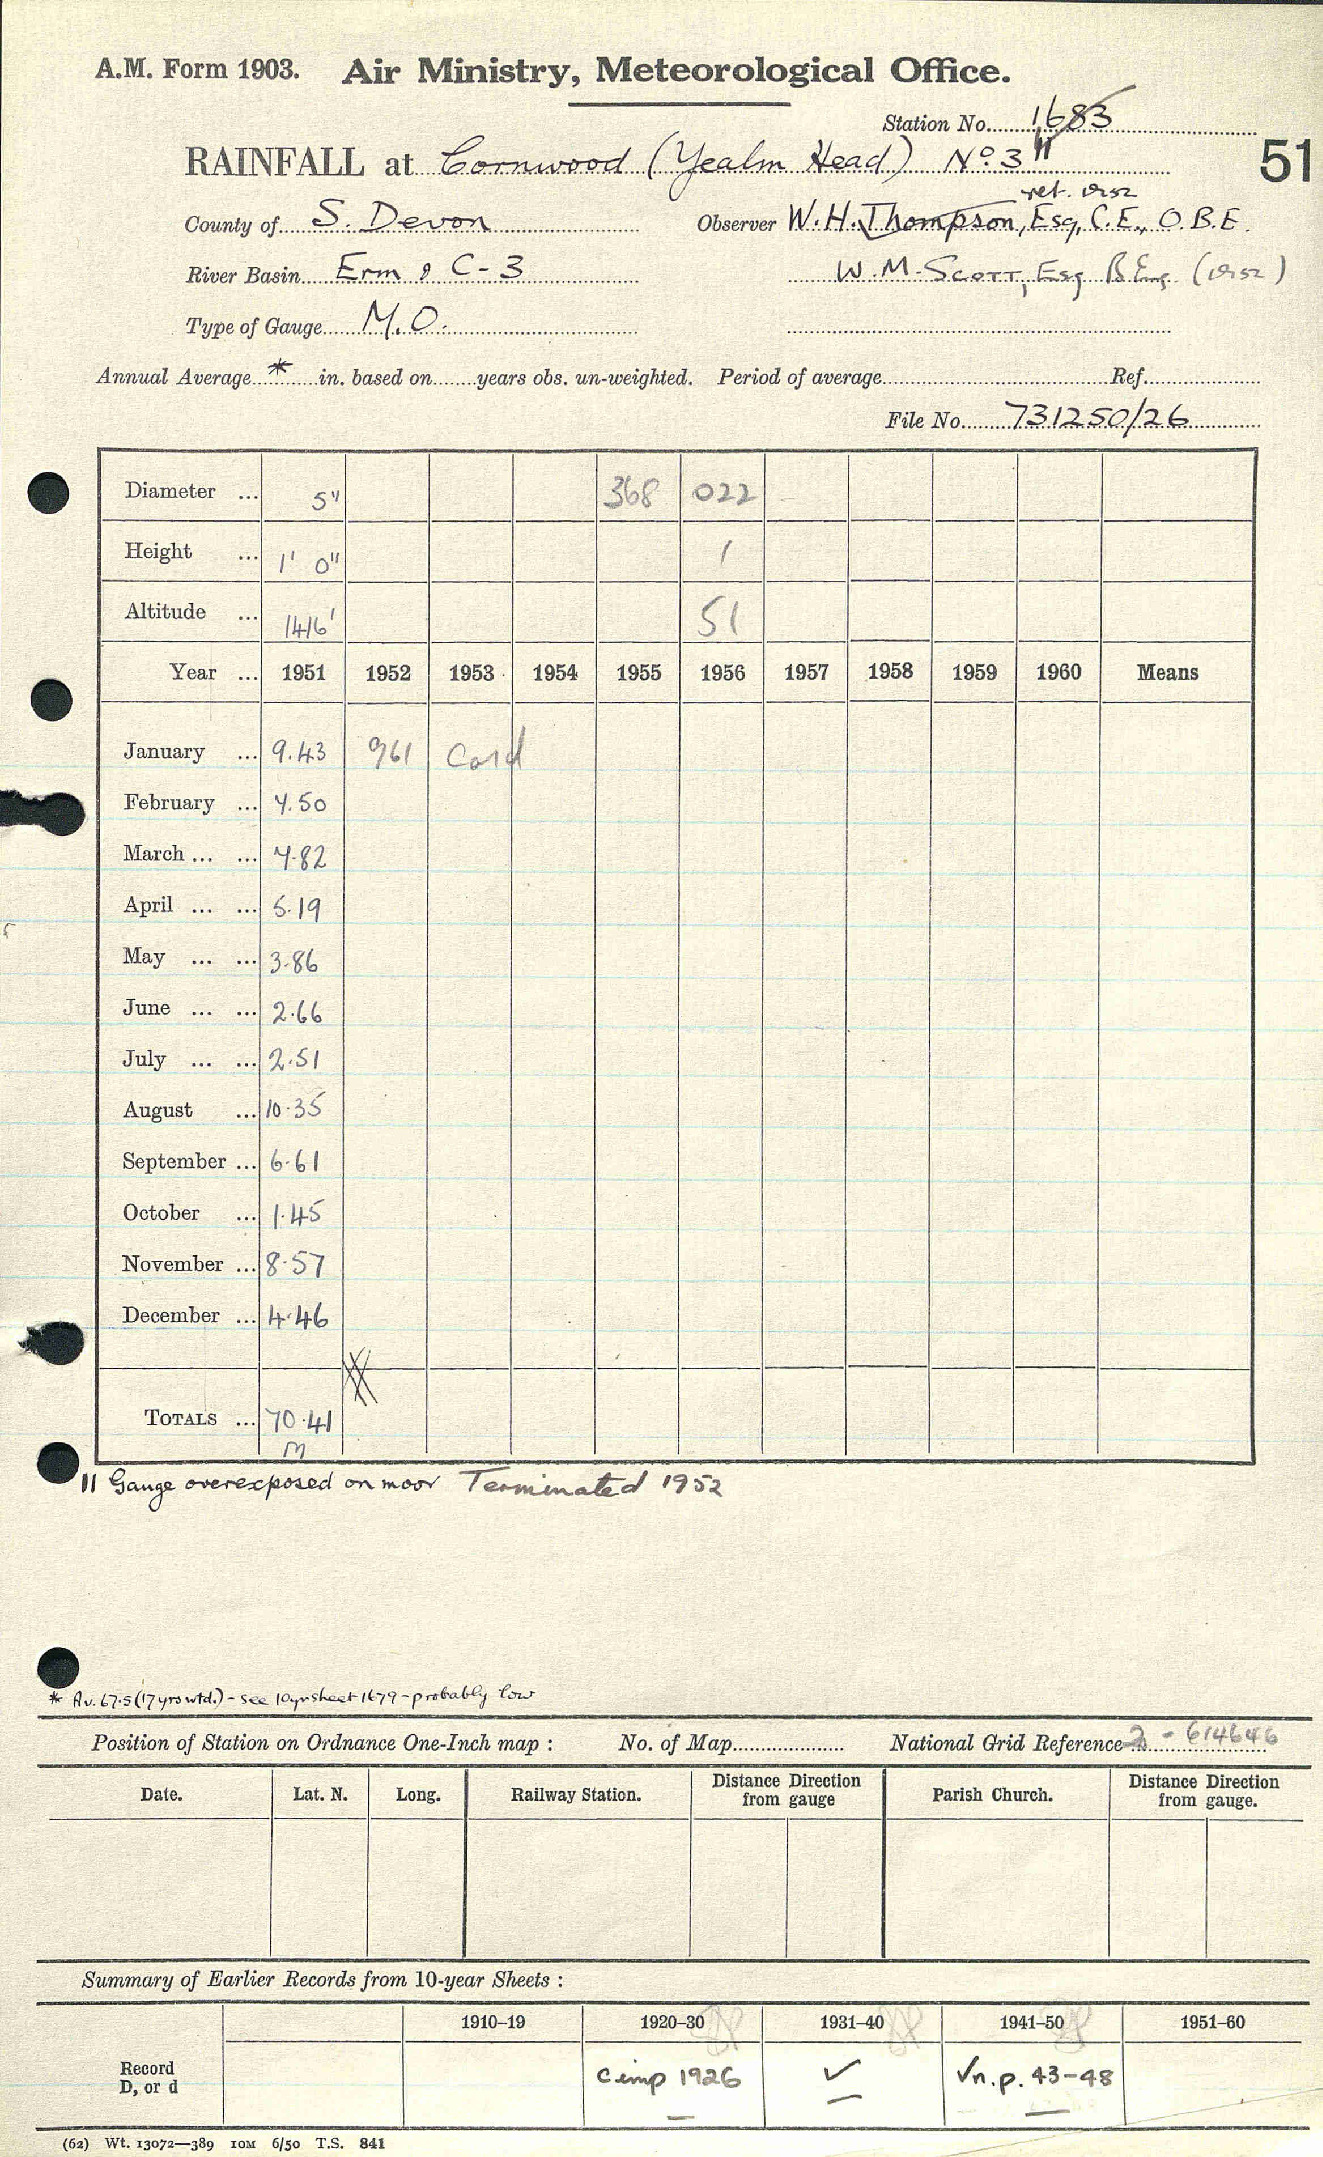 A.M. Form 1903. Air Ministry, Meteorological Office.
Station No. 1683
RAINFALL at Cornwood (Yealm Head) No. 3 11
51
ret. 1952
County of S. Devon Observer W. H. Thompson, Esq, C.E., O.B.E.
River Basin Erm & C-3 W. M. Scott, Esq B.Eng. (1952)
Type of Gauge M.O.
Annual Average * in. based on years obs. un-weighted. Period of average Ref.
File No. 731250/26
Diameter ... 5" 368 022
Height ... 1' 0" 1
Altitude ... 1416' 51
Year ... 1951 1952 1953 1954 1955 1956 1957 1958 1959 1960 Means
January ... 9.43 961 Card
February ... 7.50
March ... ... 7.82
April ... ... 5.19
May ... ... 3.86
June ... ... 2.66
July ... ... 2.51
August ... 10.35
September ... 6.61
October ... 1.45
November ... 8.57
December ... 4.46
TOTALS ... 70.41
M
11 Gauge overexposed on moor Terminated 1952
* Av. 67.5 (17 yrs wtd.) - see 10yr sheet 1679 - probably low
Position of Station on Ordnance One-Inch map : No. of Map National Grid Reference 2 - 614646
Date. Lat. N. Long. Railway Station. Distance Direction from gauge Parish Church. Distance Direction from gauge.
Summary of Earlier Records from 10-year Sheets :
1910–19 1920–30 1931–40 1941–50 1951–60
Record D, or d C imp 1926 ✓ ✓n.p. 43-48
(62) Wt. 13072—389 10M 6/50 T.S. 841